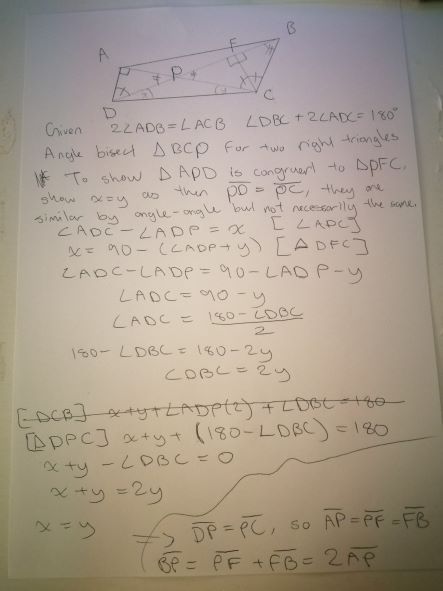 A
B
F
P
x
x
y
D
C
Given 2∠ADB = ∠ACB ∠DBC + 2∠ADC = 180°
Angle bisect △BCP for two right triangles
To show △APD is congruent to △PFC,
show x=y as then PD = PC, they are
similar by angle-angle but not necessarily the same.
∠ADC - ∠ADP = x [∠ADC]
x = 90 - (∠ADP + y) [△DFC]
∠ADC - ∠ADP = 90 - ∠ADP - y
∠ADC = 90 - y
∠ADC = 180 - ∠DBC
2
180 - ∠DBC = 180 - 2y
∠DBC = 2y
[-DCB] x+y+∠ADP(2) + ∠DBC = 180
[△DPC] x+y+ (180-∠DBC) = 180
x+y - ∠DBC = 0
x+y = 2y
x = y => DP = PC, so AP = PF = FB
BP = PF + FB = 2AP